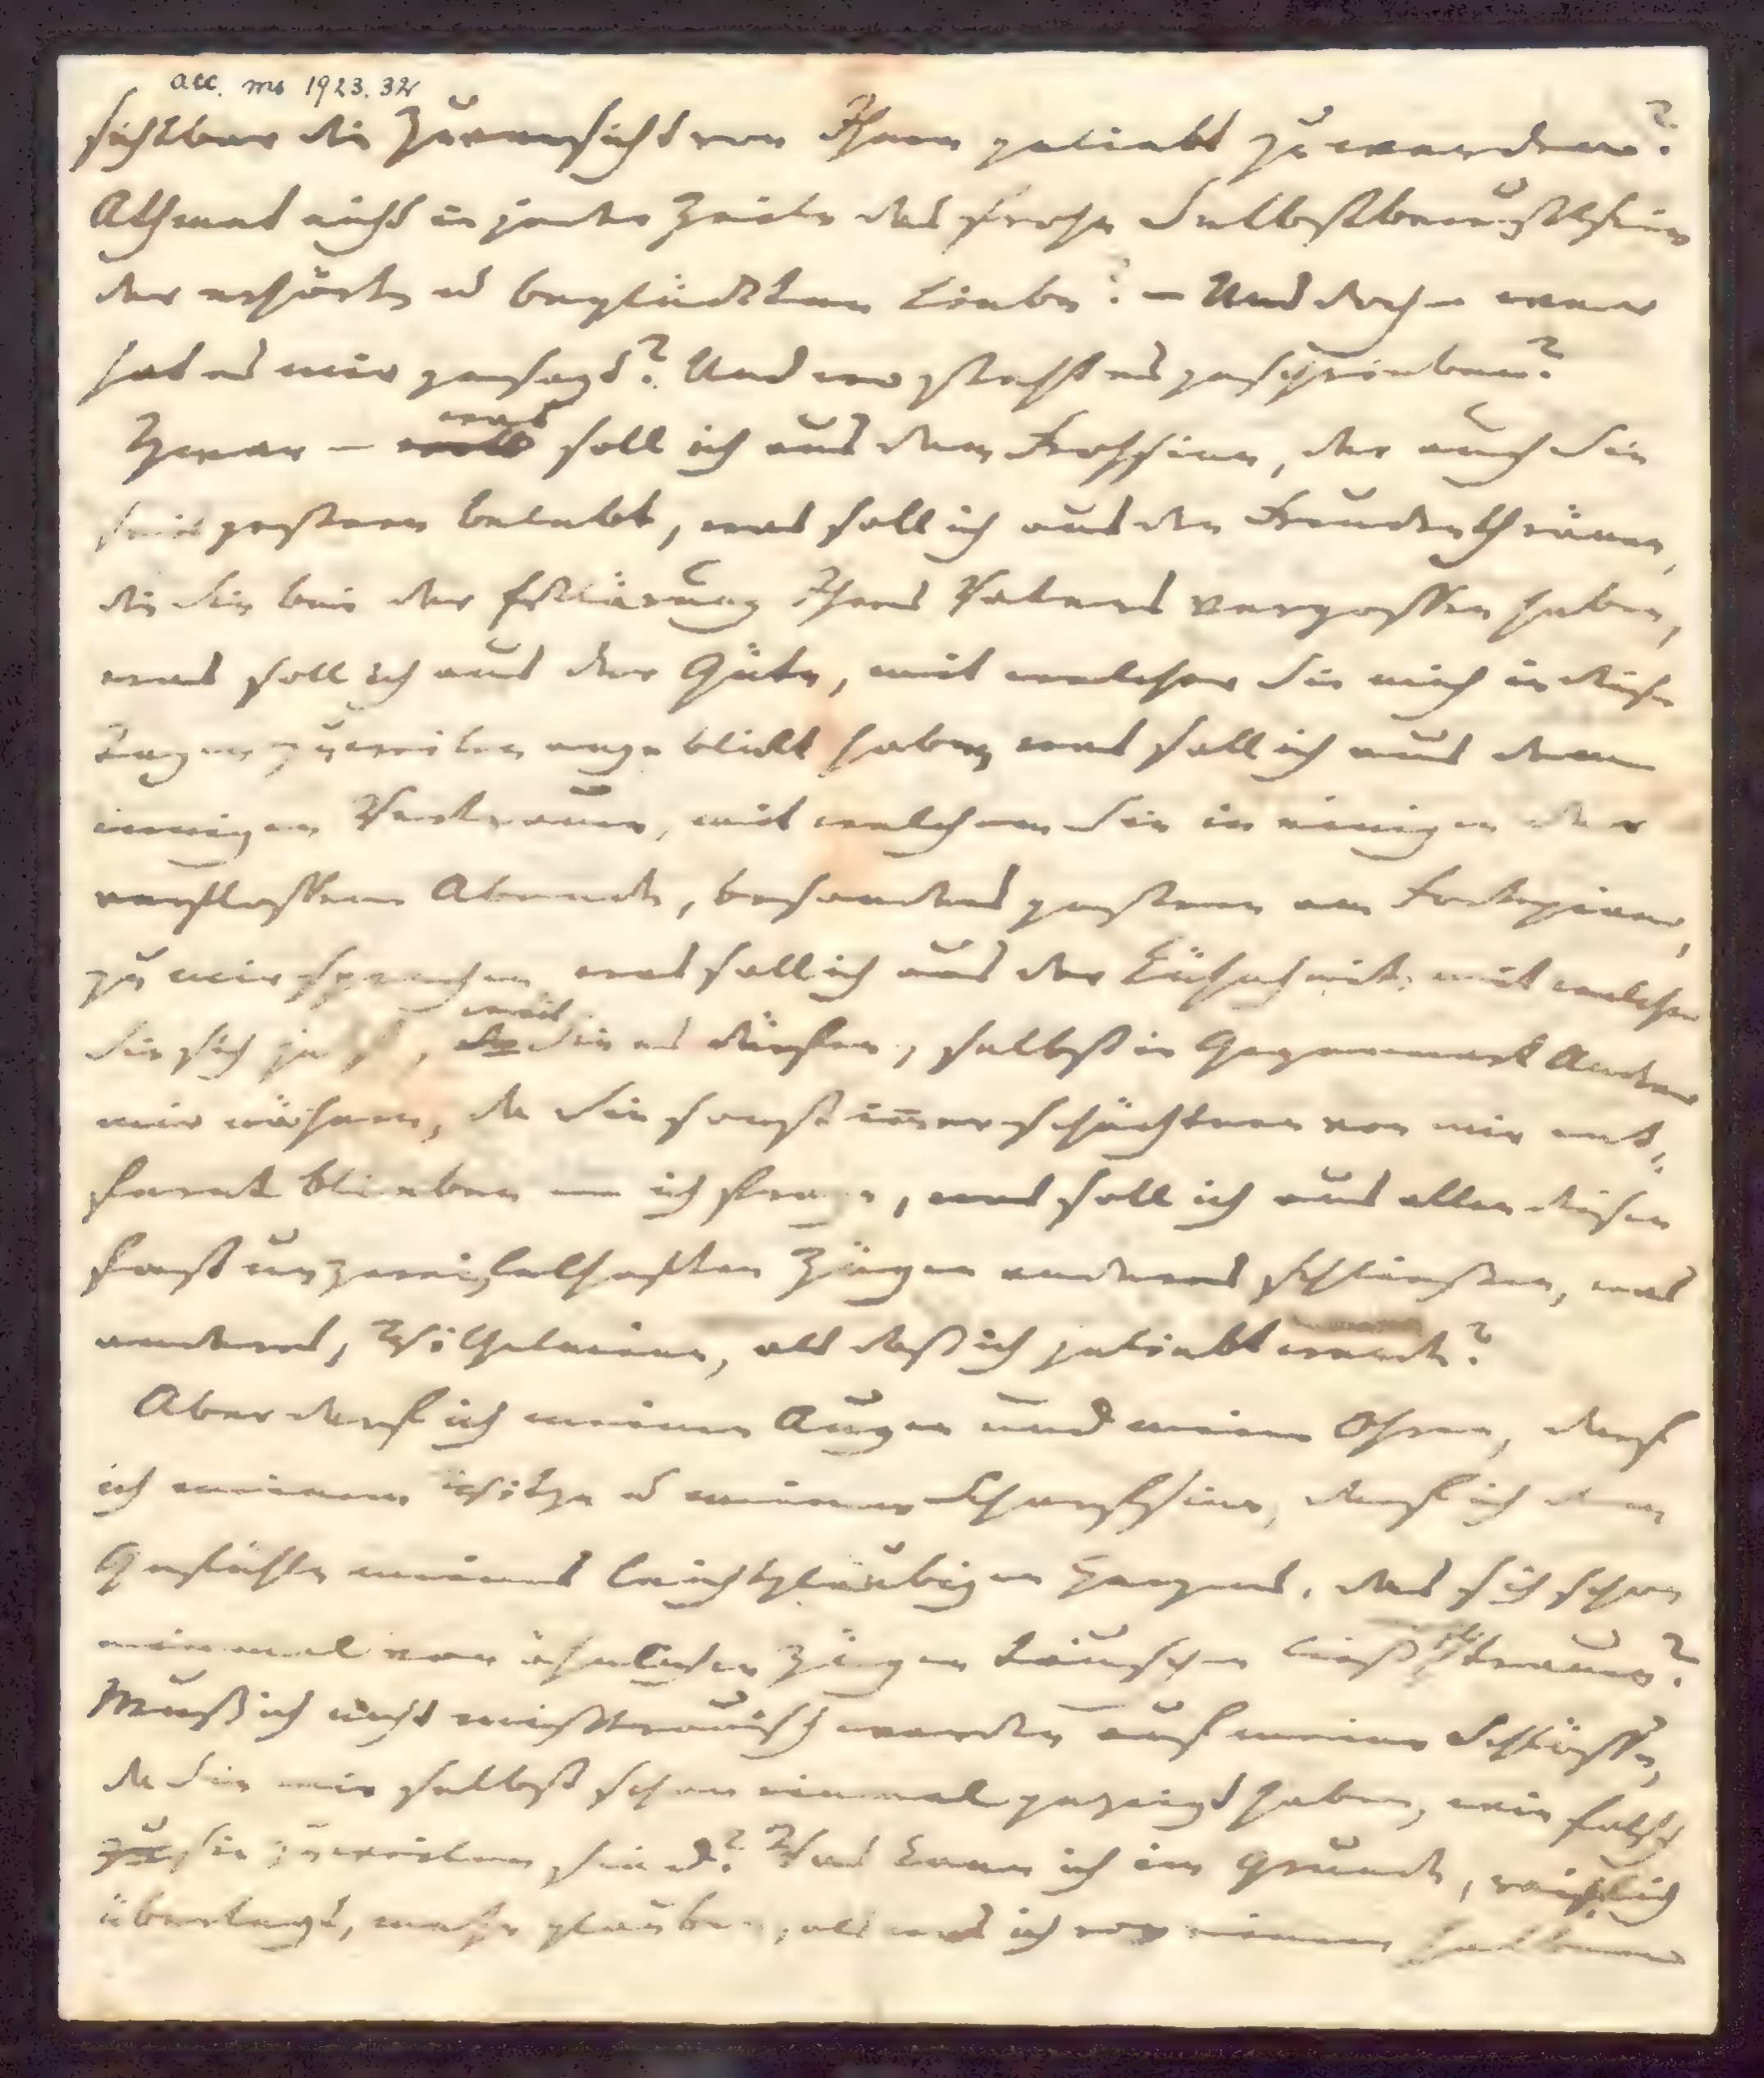 acc. ms 1923. 32
sichtbar die Zuversicht von Ihnen geliebt zu werden?
Athmet nicht in jeder Zeile das frohe Selbstbewußtsein
der erhörten u beglückten Liebe? — Und doch — wer
hat es mir gesagt? Und wo steht es geschrieben?
Zwar — was soll ich aus dem Frohsinn, der auch Sie
seit gestern belebt, was soll ich aus den Freudenthränen,
die Sie bei der Erklärung Ihres Vaters vergossen haben,
was soll ich aus der Güte, mit welcher Sie mich in diesen
Tagen zuweilen angeblickt haben, was soll ich aus dem
innigen Vertrauen, mit welchem Sie in einigen der
verflossenen Abende, besonders gestern am Fortepiano,
zu mir sprachen, was soll ich aus der Kühnheit, mit welcher
Sie sich jetzt, weil Sie es dürfen, selbst in Gegenwart Andrer
mir nähern, da Sie sonst immer schüchtern von mir ent-
fernt blieben — ich frage, was soll ich aus allen diesen
fast unzweifelhaften Zügen anderes schließen, was
anderes, Wilhelmine, als daß ich geliebt werde?
Aber darf ich meinen Augen und meinen Ohren, darf
ich meinem Witze u meinem Scharfsinn, darf ich dem
Gefühle meines leichtgläubigen Herzens, das sich schon
einmal von ähnlichen Zügen täuschen ließ, trauen?
Muß ich nicht mißtrauisch werden auf meine Schlüsse,
da Sie mir selbst schon einmal gezeigt haben, wie falsch
sie zuweilen sind? Was kann ich im Grunde, reiflich
überlegt, mehr glauben, als was ich vor einem halben